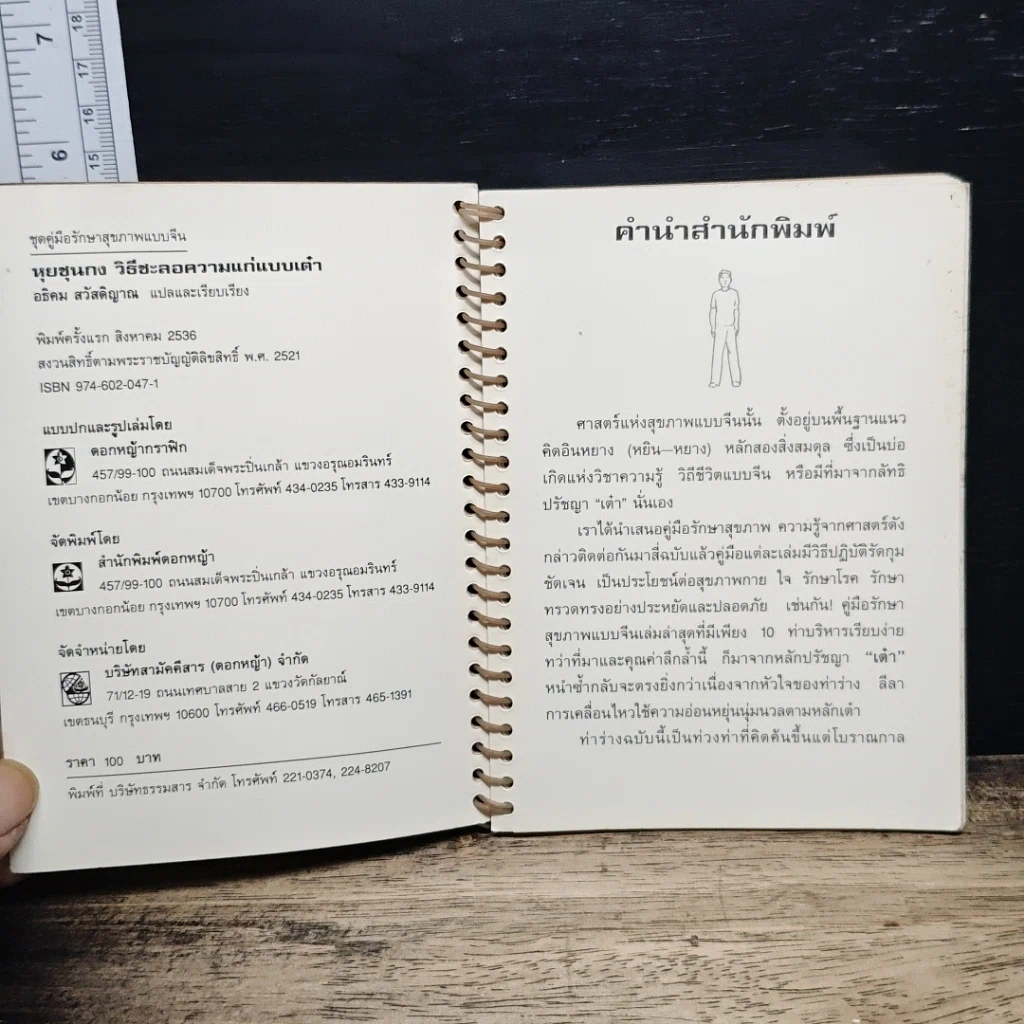 7
6
18
17
16
15
ชุดคู่มือรักษาสุขภาพแบบจีน
หุยชุนกง วิธีชะลอความแก่แบบเต๋า
อธิคม สวัสดิญาณ แปลและเรียบเรียง
พิมพ์ครั้งแรก สิงหาคม 2536
สงวนสิทธิ์ตามพระราชบัญญัติลิขสิทธิ์ พ.ศ. 2521
ISBN 974-602-047-1
แบบปกและรูปเล่มโดย
ดอกหญ้ากราฟิก
457/99-100 ถนนสมเด็จพระปิ่นเกล้า แขวงอรุณอมรินทร์
เขตบางกอกน้อย กรุงเทพฯ 10700 โทรศัพท์ 434-0235 โทรสาร 433-9114
จัดพิมพ์โดย
สำนักพิมพ์ดอกหญ้า
457/99-100 ถนนสมเด็จพระปิ่นเกล้า แขวงอรุณอมรินทร์
เขตบางกอกน้อย กรุงเทพฯ 10700 โทรศัพท์ 434-0235 โทรสาร 433-9114
จัดจำหน่ายโดย
บริษัทสามัคคีสาร (ดอกหญ้า) จำกัด
71/12-19 ถนนเทศบาลสาย 2 แขวงวัดกัลยาณ์
เขตธนบุรี กรุงเทพฯ 10600 โทรศัพท์ 466-0519 โทรสาร 465-1391
ราคา 100 บาท
พิมพ์ที่ บริษัทธรรมสาร จำกัด โทรศัพท์ 221-0374, 224-8207
คำนำสำนักพิมพ์
ศาสตร์แห่งสุขภาพแบบจีนนั้น ตั้งอยู่บนพื้นฐานแนว
คิดอินหยาง (หยิน—หยาง) หลักสองสิ่งสมดุล ซึ่งเป็นบ่อ
เกิดแห่งวิชาความรู้ วิถีชีวิตแบบจีน หรือมีที่มาจากลัทธิ
ปรัชญา “เต๋า” นั่นเอง
เราได้นำเสนอคู่มือรักษาสุขภาพ ความรู้จากศาสตร์ดัง
กล่าวติดต่อกันมาสี่ฉบับแล้วคู่มือแต่ละเล่มมีวิธีปฏิบัติรัดกุม
ชัดเจน เป็นประโยชน์ต่อสุขภาพกาย ใจ รักษาโรค รักษา
ทรวดทรงอย่างประหยัดและปลอดภัย เช่นกัน! คู่มือรักษา
สุขภาพแบบจีนเล่มล่าสุดที่มีเพียง 10 ท่าบริหารเรียบง่าย
ทว่าที่มาและคุณค่าลึกล้ำนี้ ก็มาจากหลักปรัชญา “เต๋า”
หนำซ้ำกลับจะตรงยิ่งกว่าเนื่องจากหัวใจของท่าร่าง ลีลา
การเคลื่อนไหวใช้ความอ่อนหยุ่นนุ่มนวลตามหลักเต๋า
ท่าร่างฉบับนี้เป็นท่วงท่าที่คิดค้นขึ้นแต่โบราณกาล